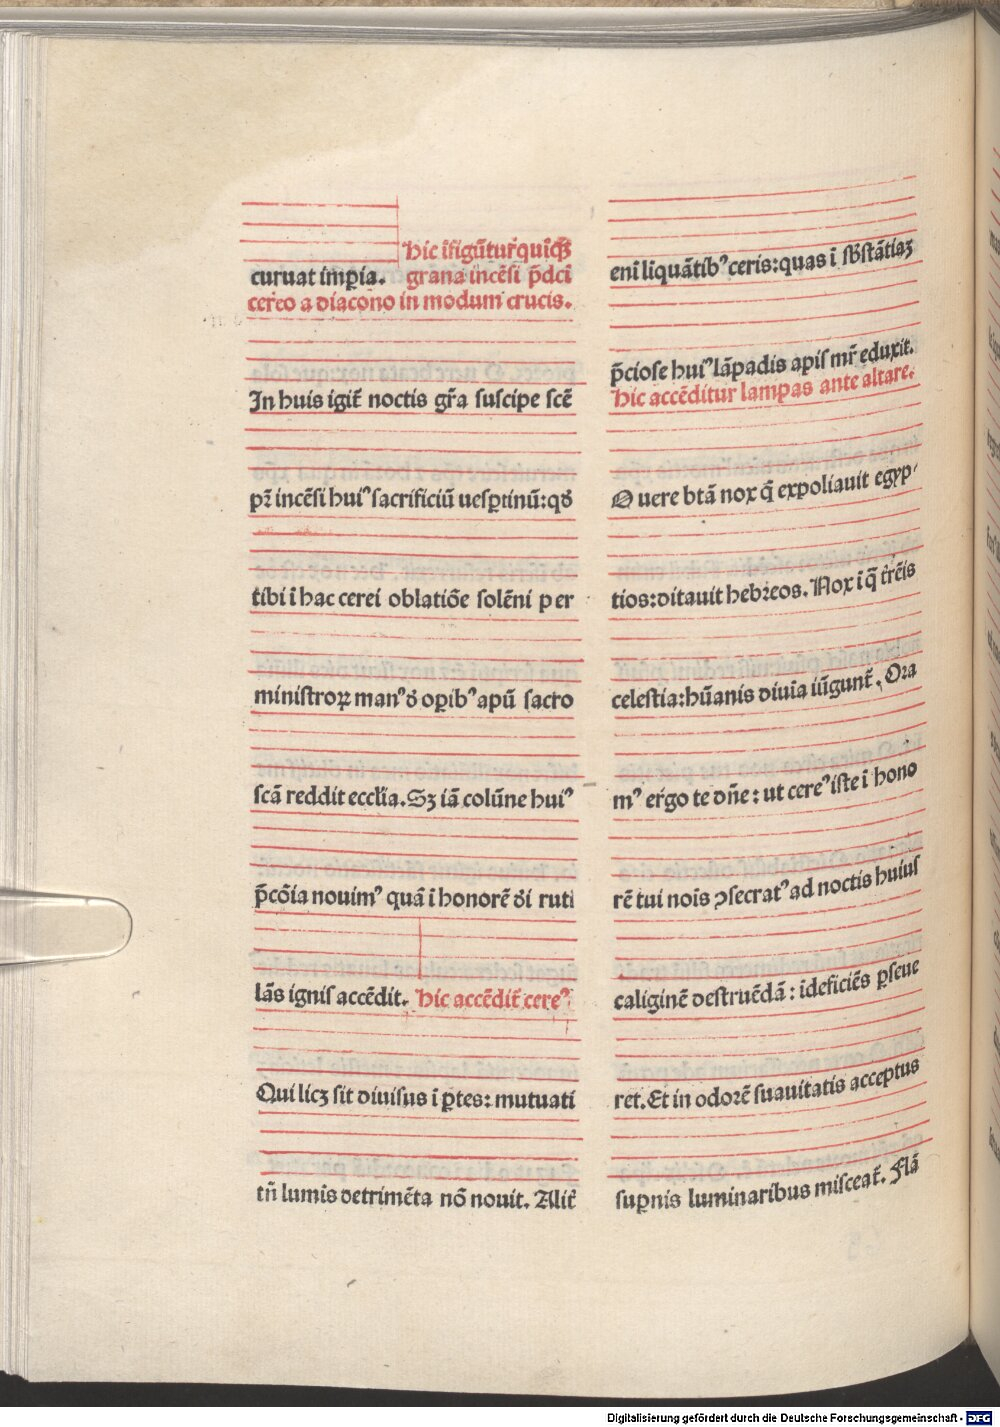 hic ĩfigũtur̃ quiq̃z
curuat imp̱ia. grana incẽsi p̃dci
cereo a diacono in modum crucis.
In huis igit̃ noctis gr̃a suscipe scẽ
pr̃ incẽsi huiꝰ sacrificiũ uesp̱tinũ: qd̃
tibi ĩ hac cerei oblatiõe solẽni per
ministroꝝ manꝰ d̃ op̱ibꝰ apũ sacro
scã reddit eccl̃ia. Sꝫ iã colũne huiꝰ
p̃cõia nouimꝰ quã ĩ honorẽ d̃i ruti
lãs ignis accẽdit. hic accẽdit̃ cereꝰ
Qui licꝫ sit diuisus ĩ p̱tes: mutuati
tñ lumis detrimẽta nõ nouit. Alit̃
eni liquãtibꝰ ceris: quas ĩ sb̃stãtiaꝫ
p̃ciose huiꝰ lãpadis apis mr̃ eduxit.
hic accẽditur lampas ante altare.
O uere btã nox q̃ expoliauit egyp
tios: ditauit hebreos. Nox ĩ q̃ t̃rẽis
celestia: hũanis diuia iũgunt̃. Ora
mꝰ ergo te dñe: ut cereꝰ iste ĩ hono
rẽ tui nois ꝯsecratꝰ ad noctis huius
caliginẽ destruẽdã: ideficiẽs p̱seue
ret. Et in odorẽ suauitatis acceptus
sup̱nis luminaribus misceat̃. Flã
Digitalisierung gefördert durch die Deutsche Forschungsgemeinschaft - DFG